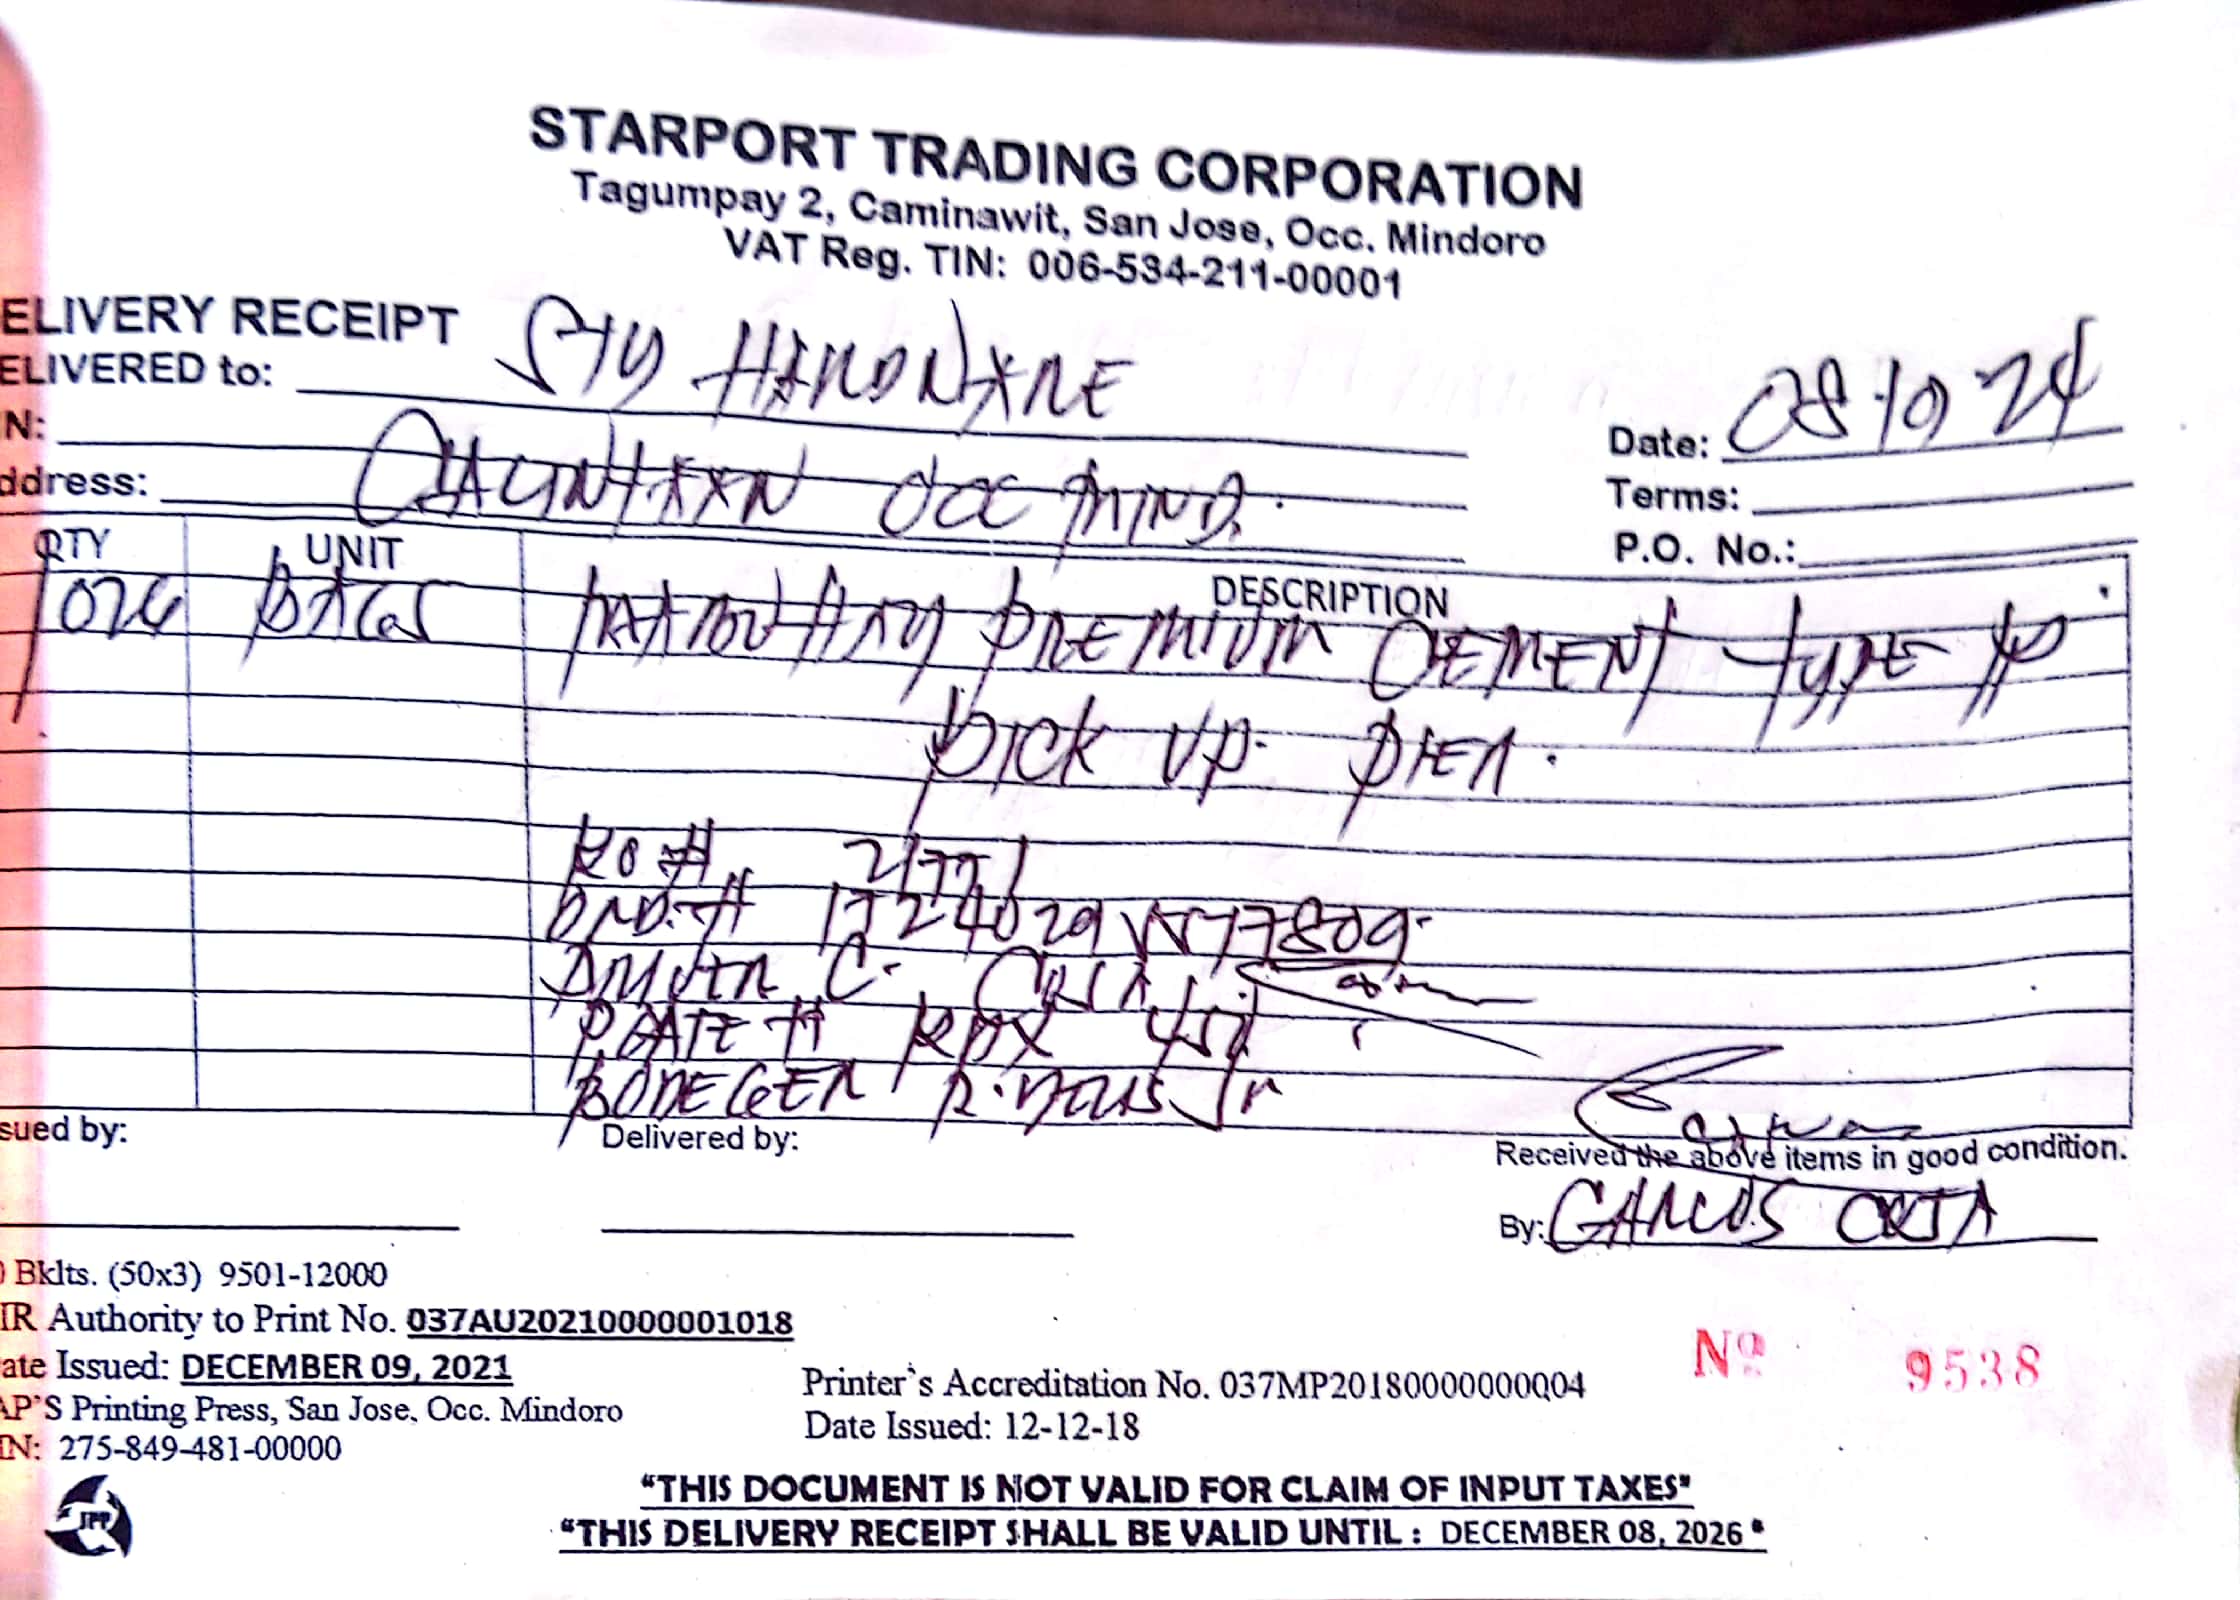 STARPORT TRADING CORPORATION
Tagumpay 2, Caminawit, San Jose, Occ. Mindoro
VAT Reg. TIN: 006-534-211-00001
ELIVERY RECEIPT
ELIVERED to: STY HARDWARE
N:
ddress: OCC MIND.
Date: 08 10 24
Terms:
P.O. No.:
QTY UNIT DESCRIPTION
BAGS PREMIUM CEMENT TYPE 1P
PICK UP PIER.
RO #
#
C. CRISTA
PLATE #
BODEGER Jr
sued by:
Delivered by:
Received the above items in good condition.
By: CARLOS
Bklts. (50x3) 9501-12000
IR Authority to Print No. 037AU20210000001018
ate Issued: DECEMBER 09, 2021
AP'S Printing Press, San Jose, Occ. Mindoro
IN: 275-849-481-00000
Printer's Accreditation No. 037MP20180000000004
Date Issued: 12-12-18
Nº 9538
JPP
"THIS DOCUMENT IS NOT VALID FOR CLAIM OF INPUT TAXES"
"THIS DELIVERY RECEIPT SHALL BE VALID UNTIL : DECEMBER 08, 2026"